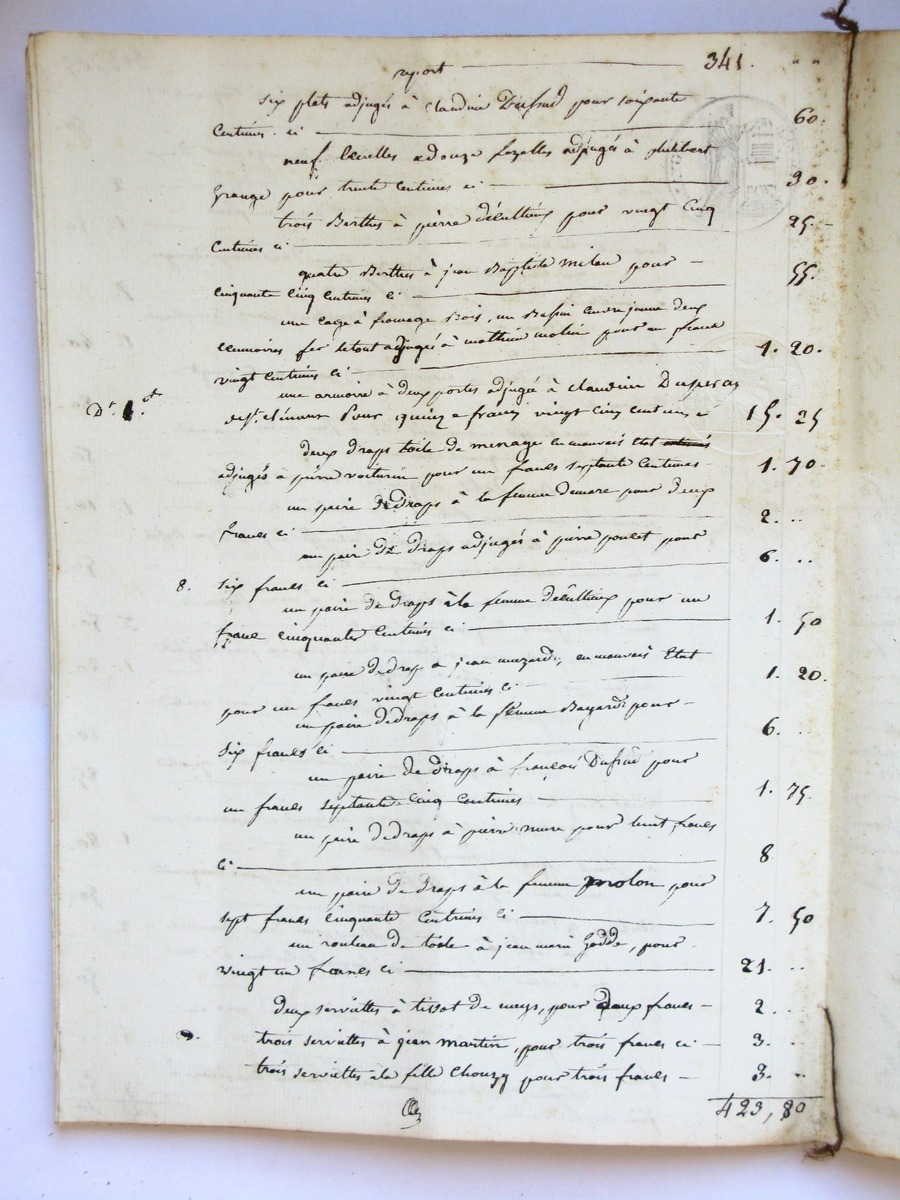 report 341. " "
six plats adjugés à Claudine Dufrud pour soixante
Centimes. ci 60.
neuf Ecuelles adouze adjugés à philibert
Grange pour trente Centimes ci 30.
trois Berthes à pierre pour vingt Cinq
Centimes ci 25.
quatre Berthes à jean Baptiste milan pour
Cinquante Cinq Centimes ci 55.
une Cage à fromage Bois, un Bassin Cuivre jaune deux
fer le tout adjugés à mathieu molin pour un franc
vingt Centimes ci 1. 20.
une armoire à deux portes adjugé à Claudine
Dt. 1.er pour quinze francs vingt Cinq Centimes ci 15. 25
deux draps toile de menage en mauvais Etat
adjugés à pierre voiturin pour un francs septante Centimes 1. 70.
un paire Dedraps à la femme pour deux
francs ci 2. ..
un paire De draps adjugés à pierre poulet pour
8. six francs ci 6. ..
un paire de draps à la femme pour un
franc Cinquante Centimes ci 1. 50
un paire dedrap a jean en mauvais Etat
pour un francs vingt Centimes ci 1. 20.
un paire Dedraps à la femme Bayard pour
six francs ci 6. ..
un paire de draps à francois Dufrud pour
un francs septante Cinq Centimes 1. 75.
un paire Dedraps à pierre mure pour huit francs
ci 8
un paire de draps à la femme molon pour
sept francs Cinquante Centimes ci 7. 50
un rouleau de toile à jean marie Godde, pour
vingt un francs ci 21. ..
deux serviettes à tissot de meys, pour Deux francs 2. ..
trois serviettes à jean martin, pour trois francs ci 3. ..
trois serviettes ala fille Chouzy pour trois francs 3. ..
423, 80